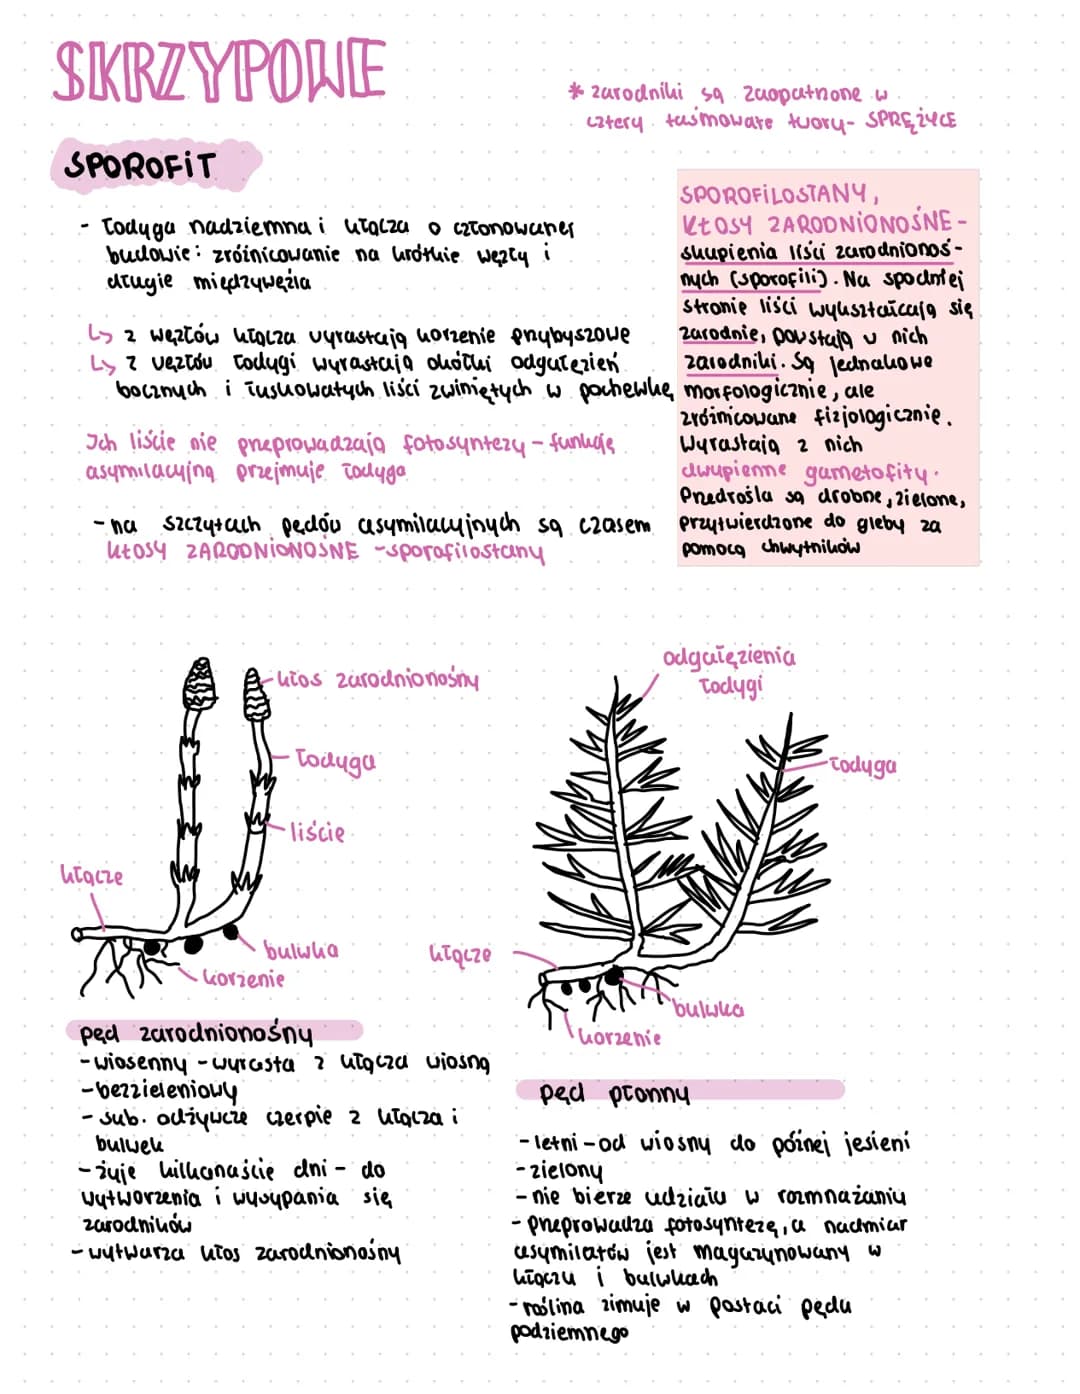 SKRZYPOWE
* zarodniki są zaopatrzone w
cztery taśmowate twory- SPRĘŻYCE
SPOROFIT
- Łodyga nadziemna i kłącza o członowanej
budowie: zróżnicowanie na krótkie węzły i
długie międzywęźla
↳ z węzłów kłącza wyrastają korzenie przybyszowe
↳ z węzłów łodygi wyrastają okółki odgałęzień
bocznych i łuskowatych liści zwiniętych w pochewkę
Ich liście nie przeprowadzają fotosyntezy - funkcję
asymilacyjną przejmuje łodyga
- na szczytach pędów asymilacyjnych są czasem
KŁOSY ZARODNIONOŚNE - sporofilostany
SPOROFILOSTANY,
KŁOSY ZARODNIONOŚNE -
skupienia liści zarodnionoś-
nych (sporofili). Na spodniej
stronie liści wykształcają się
zarodnie, powstają w nich
zarodniki. Są jednakowe
morfologicznie, ale
zróżnicowane fizjologicznie.
Wyrastają z nich
dwupienne gametofity.
Przedrośla są drobne, zielone,
przytwierdzone do gleby za
pomocą chwytników
kłos zarodnionośny
łodyga
liście
kłącze
bulwka
korzenie
odgałęzienia
łodygi
łodyga
kłącze
bulwka
korzenie
pęd zarodnionośny
- wiosenny - wyrasta z kłącza wiosną
- bezzieleniowy
- sub. odżywcze czerpie z kłącza i
bulwek
- żyje kilkanaście dni - do
wytworzenia i wysypania się
zarodników
- wytwarza kłos zarodnionośny
pęd płonny
- letni - od wiosny do późnej jesieni
- zielony
- nie bierze udziału w rozmnażaniu
- przeprowadza fotosyntezę, a nadmiar
asymilatów jest magazynowany w
kłączu i bulwkach
- roślina zimuje w postaci pędu
podziemnego